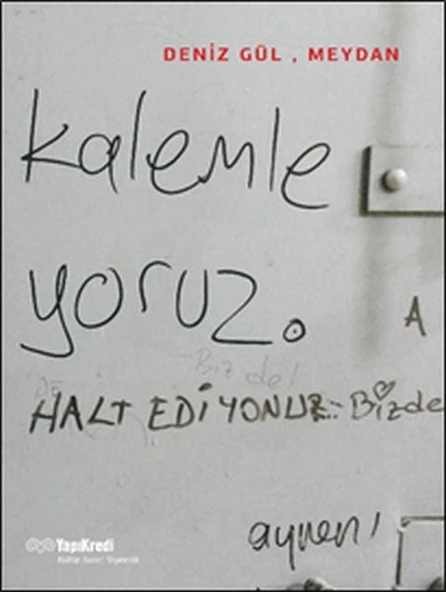 DENİZ GÜL , MEYDAN
kalemle
yoruz.
A
-Biz de!
DE
HALT EDİYONUZ.-Bizde
aynen!
YapıKredi
Kültür Sanat Yayıncılık